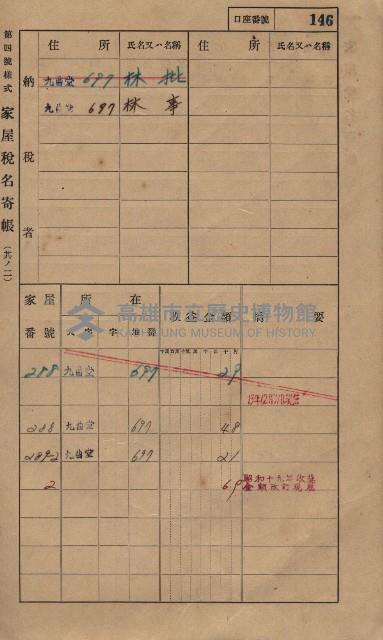 口座番號 146
第四號樣式 家屋稅名寄帳 (共ノ二)
納稅者
住所 氏名又ハ名稱 住所 氏名又ハ名稱
九曲堂 697 林批
九曲堂 697 林事
家屋番號 所在 摘要
大字 字 地番
高雄市立歷史博物館
KAOHSIUNG MUSEUM OF HISTORY
288 九曲堂 697 29
288 九曲堂 697 48
289-2 九曲堂 697 21
2 69 昭和十九年